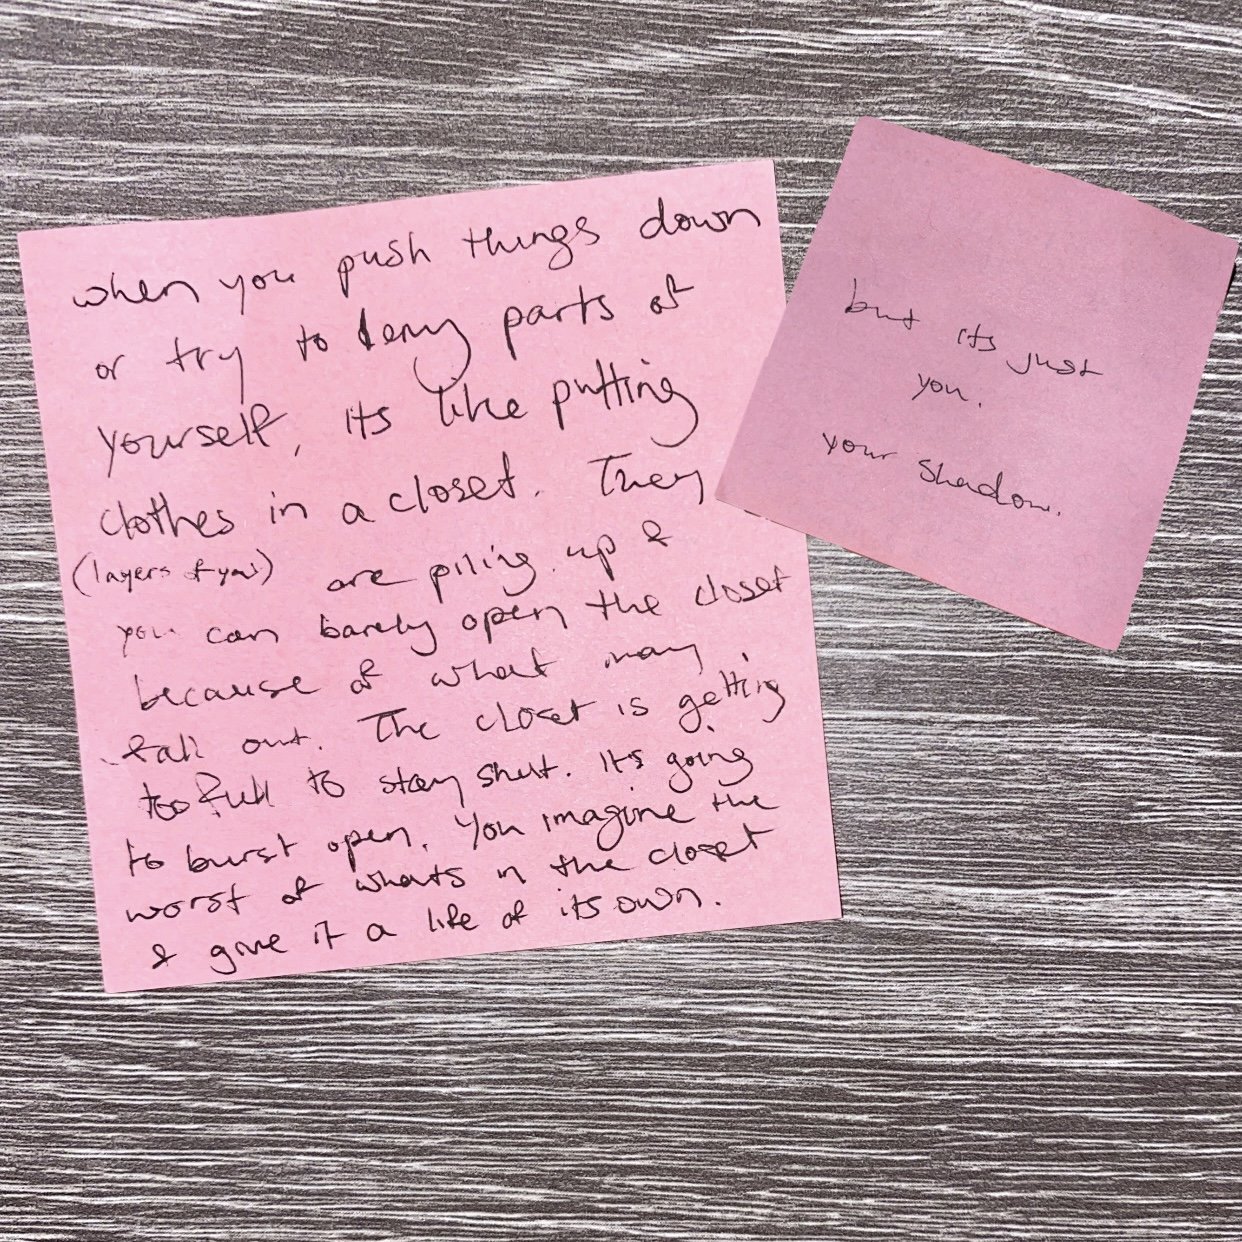 when you push things down
or try to deny parts of
yourself, its like putting
clothes in a closet. They
(layers of you) are piling up &
you can barely open the closet
because of what may
fall out. The closet is getting
too full to stay shut. It's going
to burst open. You imagine the
worst of whats in the closet
& give it a life of its own.
but its just
you.
your shadow.